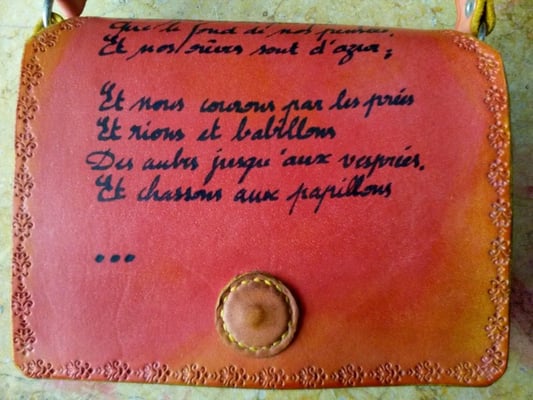 Que le fond de nos pensées,
Et nos rêves sont d'azur ;
Et nous courons par les prées
Et rions et babillons
Des aubes jusqu'aux vesprées,
Et chassons aux papillons
...